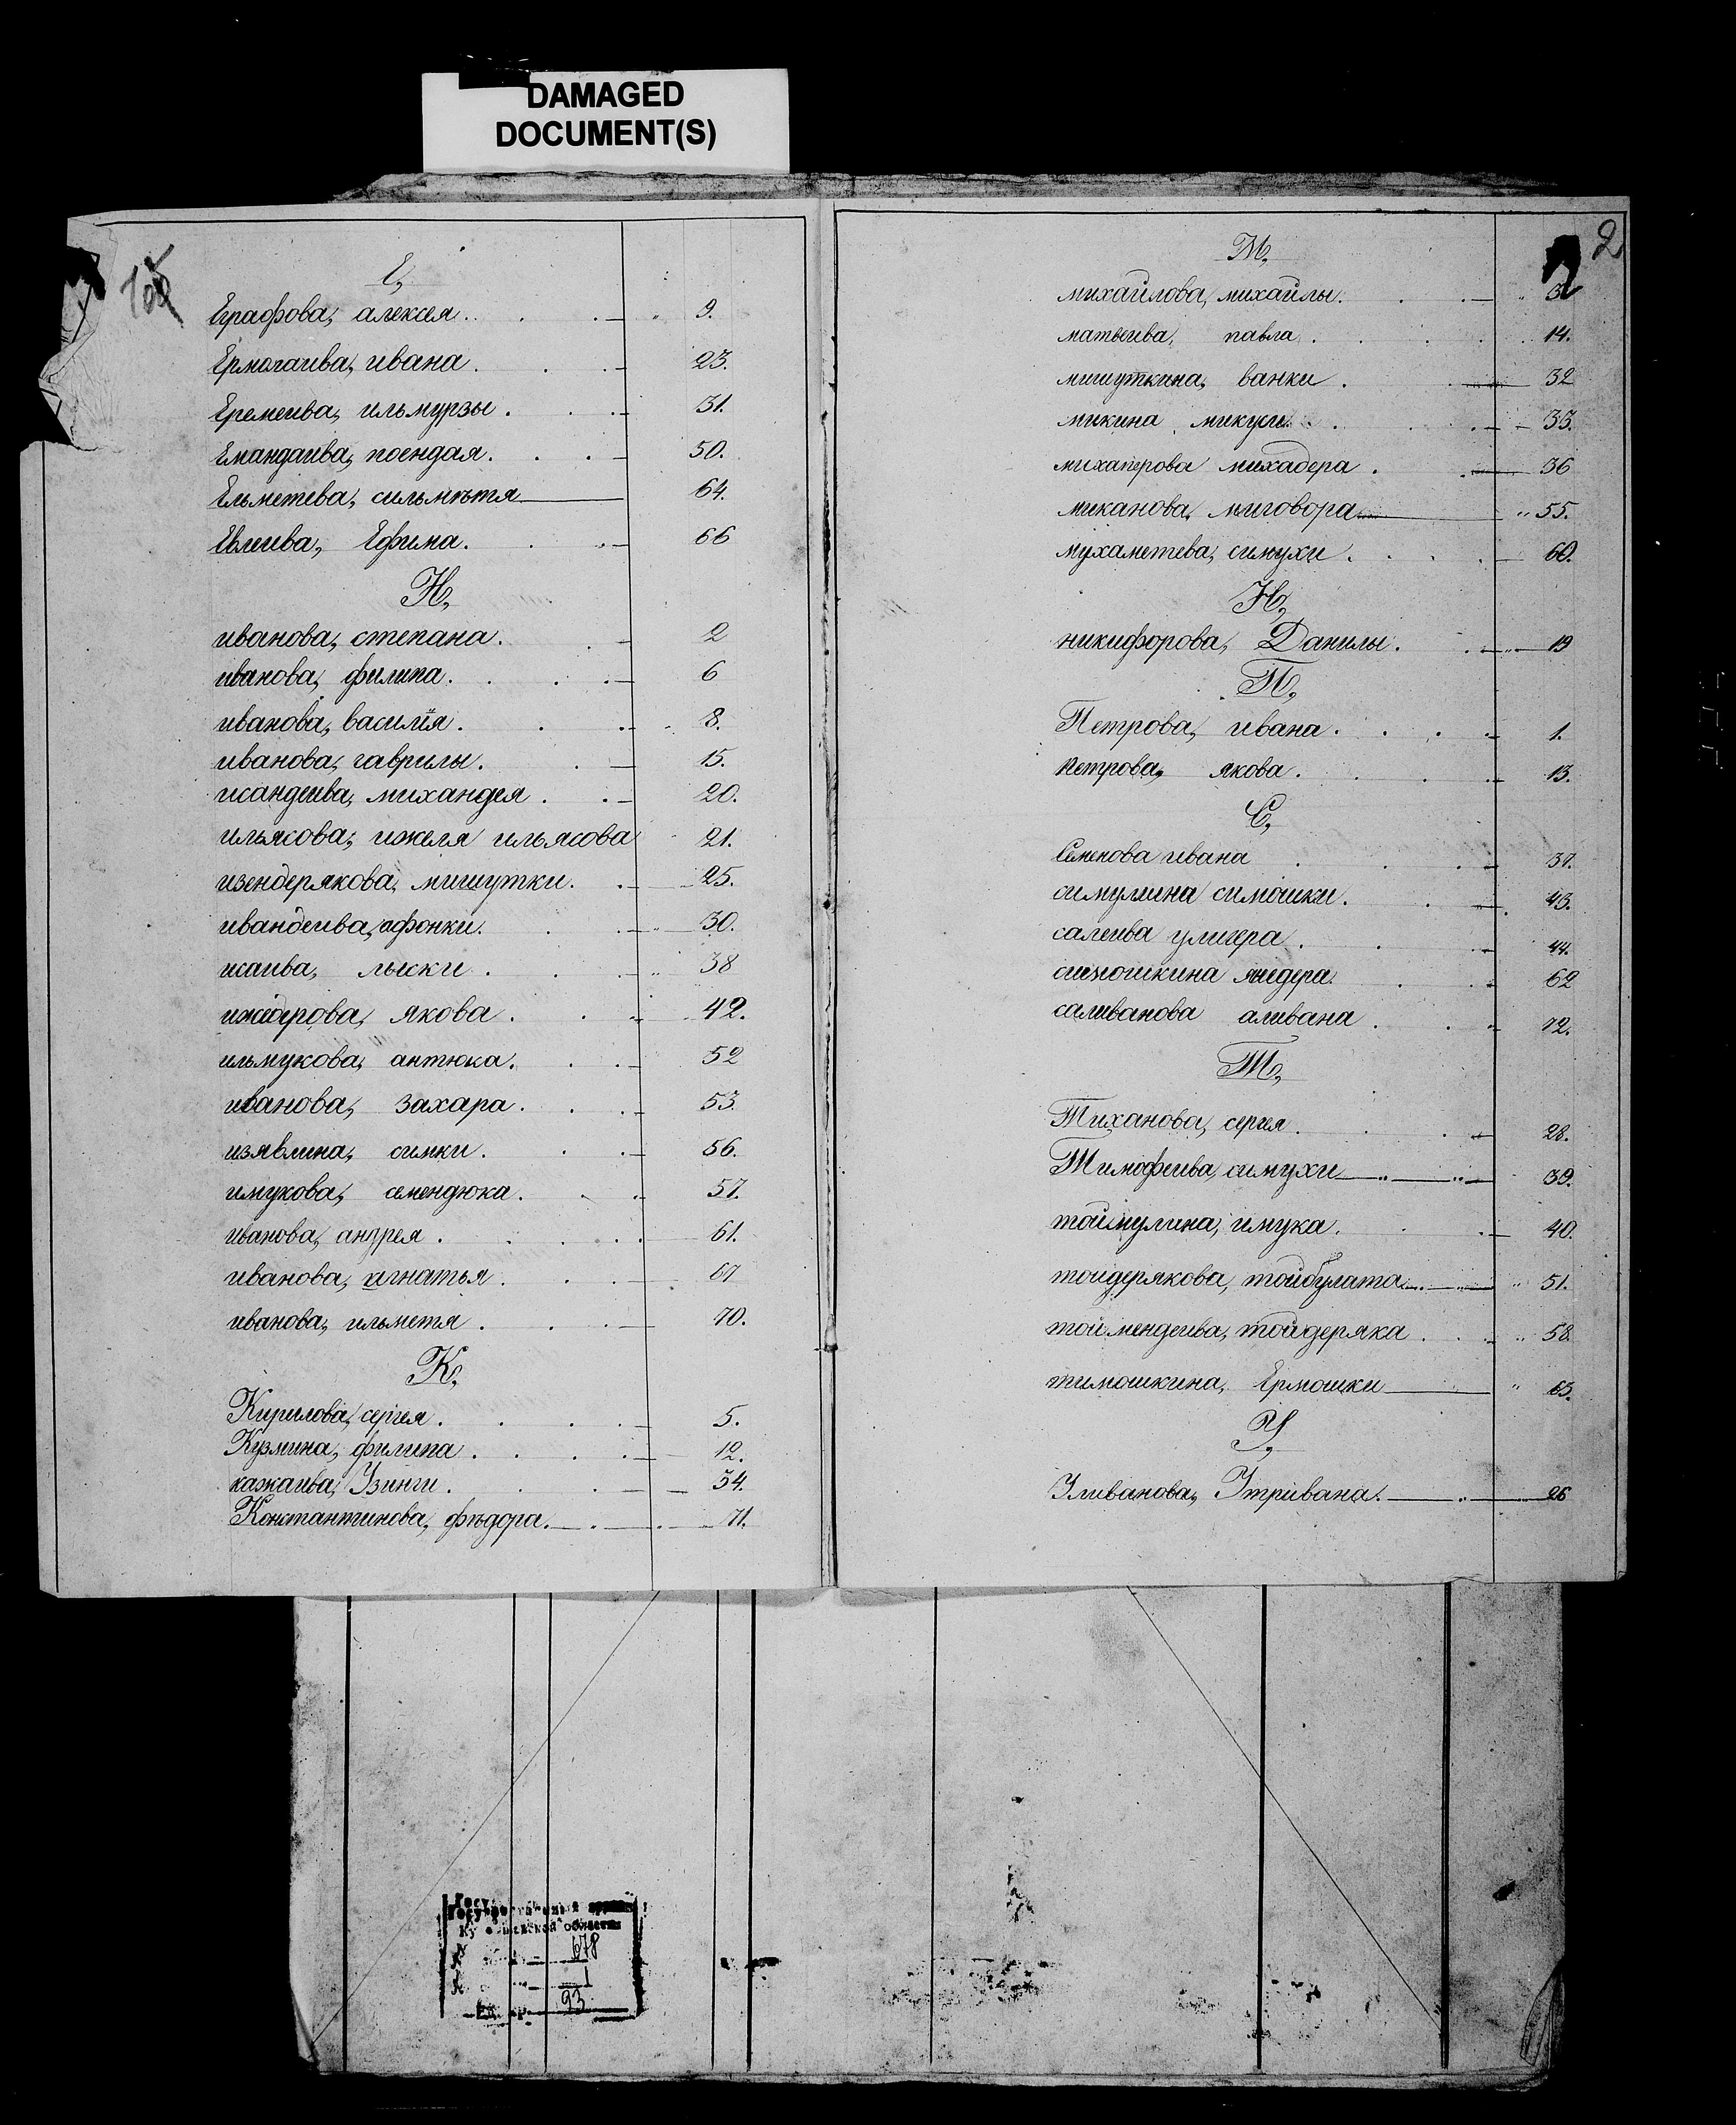 DAMAGED
DOCUMENT(S)
Е,
Еграфова, алексея 9.
Ермогаива, ивана 23.
Еремеива, ильмурзы 31.
Емандаива, поендая 50.
Ельметева, сильмѣтя 64.
Евлеива, Ефима 66
И,
иванова, степана 2
иванова, филипа 6
иванова, василїя 8.
иванова, гаврилы 15.
исандеива, михандея 20.
ильясова, ижеля ильясова 21.
изендерякова, мишутки 25.
ивандеива, афонки 30.
исаива, 38
ижедерова, якова 42.
ильмукова, антюка 52
иванова, захара 53.
изявлина, симки 56.
имукова, семендюка 57.
иванова, андрея 61.
иванова, игнатья 67
иванова, ильметя 70.
К,
Кирилова, сергея 5.
Кузмина, филипа 12.
кажаива, Узинги 54.
Константинова, фѣдора 71.
2
М,
михайлова, михайлы
матвеива, павла 14.
мишуткина, ванки 32
микина 33.
михадера 36
миканова, 55.
мухаметева, симухи 60.
Н,
никифорова, Данилы 19
П,
Петрова, ивана 1.
петрова, якова 13.
С,
Семенова ивана 37.
симулина симошки 43.
салеива улигера 44.
симошкина яндера 62
саливанова аливана 72.
Т,
Тиханова, сергея 28.
Тимофеива, симухи 39.
тоймулина, имука 40.
тойдерякова, тойбулата 51.
тоймендеива, тойдеряка 58.
тимошкина, Ермошки 65.
У,
Уливанова, Утривана 26
678
1
93